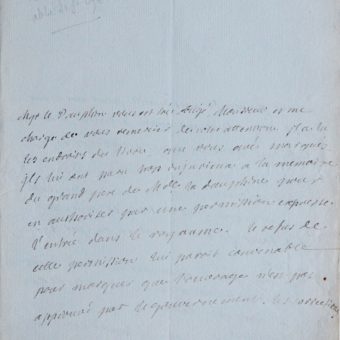 Mgr le Dauphin vous est très obligé Monsieur et me
charge de vous remercier de votre attention. Il a lu
les endroits du livre que vous avés marqués
ils lui ont paru trop injurieux a la memoire
du grand pere de Made la dauphine pour
en authoriser par une permission expresse
l'entrée dans le royaume. le refus de
cette permission lui paroit convenable
pour marquer que l'ouvrage n'est pas
approuvé par le gouvernement. les